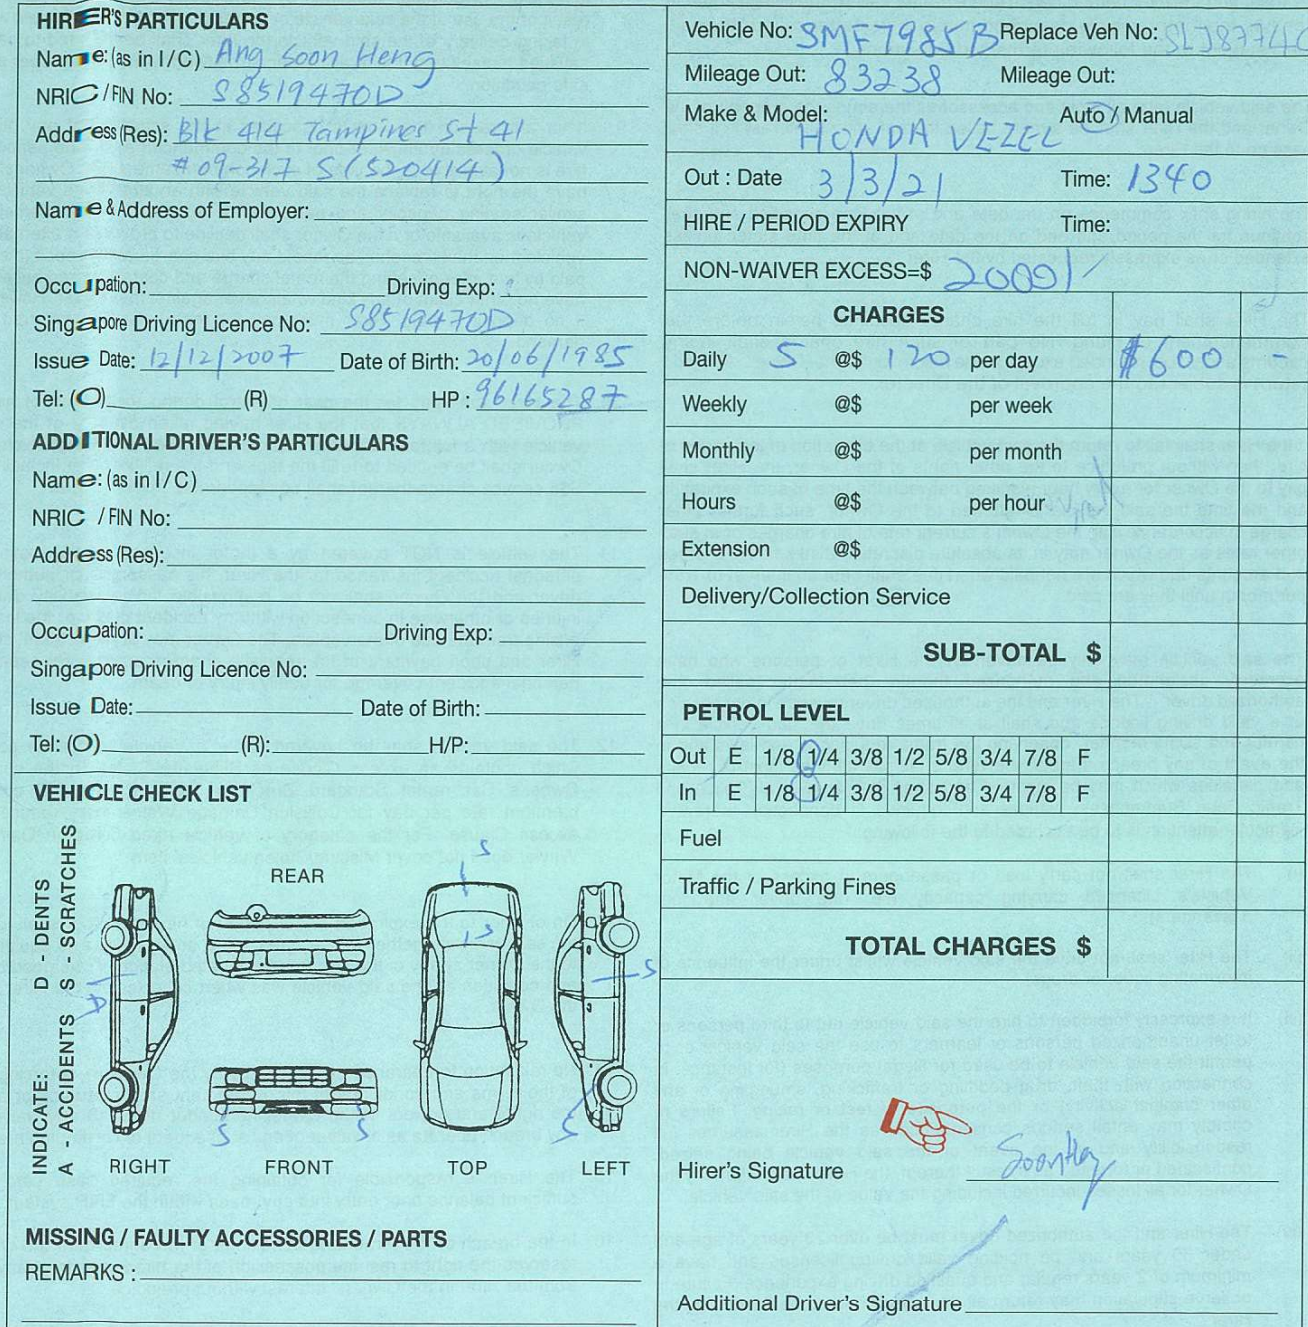 HIRER'S PARTICULARS
Name: (as in I/C) Ang Soon Heng
NRIC / FIN No: S8519470D
Address (Res): Blk 414 Tampines St 41
#09-317 S(520414)
Name & Address of Employer:
Occupation: Driving Exp:
Singapore Driving Licence No: S8519470D
Issue Date: 12/12/2007 Date of Birth: 20/06/1985
Tel: (O) (R) HP: 96165287
ADDITIONAL DRIVER'S PARTICULARS
Name: (as in I/C)
NRIC / FIN No:
Address (Res):
Occupation: Driving Exp:
Singapore Driving Licence No:
Issue Date: Date of Birth:
Tel: (O) (R): H/P:
VEHICLE CHECK LIST
INDICATE: D - DENTS
A - ACCIDENTS S - SCRATCHES
REAR
S
S
S
D
S
S
S
RIGHT FRONT TOP LEFT
MISSING / FAULTY ACCESSORIES / PARTS
REMARKS :
Vehicle No: SMF7985B Replace Veh No: SLJ8774C
Mileage Out: 83238 Mileage Out:
Make & Model: Auto / Manual
HONDA VEZEL
Out : Date 3/3/21 Time: 1340
HIRE / PERIOD EXPIRY Time:
NON-WAIVER EXCESS=$ 2000/
CHARGES
Daily 5 @$ 120 per day $600 -
Weekly @$ per week
Monthly @$ per month
Hours @$ per hour
Extension @$
Delivery/Collection Service
SUB-TOTAL $
PETROL LEVEL
Out E 1/8 1/4 3/8 1/2 5/8 3/4 7/8 F
In E 1/8 1/4 3/8 1/2 5/8 3/4 7/8 F
Fuel
Traffic / Parking Fines
TOTAL CHARGES $
Hirer's Signature
Additional Driver's Signature